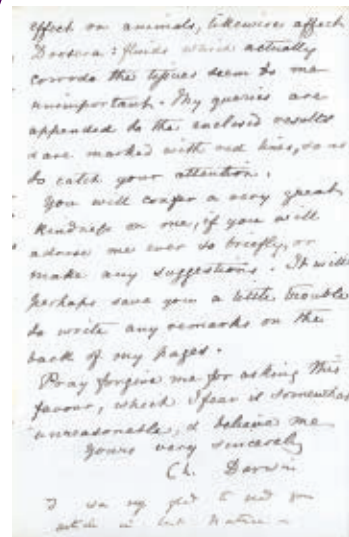 effect on animals, likewise affect
Drosera: fluids which actually
corrode the tissues seem to me
unimportant. My queries are
appended to the enclosed results
& are marked with red lines, so as
to catch your attention.
You will confer a very great
kindness on me, if you will
advise me ever so briefly, or
make any suggestions. It will
perhaps save you a little trouble
to write any remarks on the
back of my pages.
Pray forgive me for asking this
favour, which I fear is somewhat
unreasonable, & believe me
Yours very sincerely
Ch. Darwin
I was very glad to see your
article in last Nature —